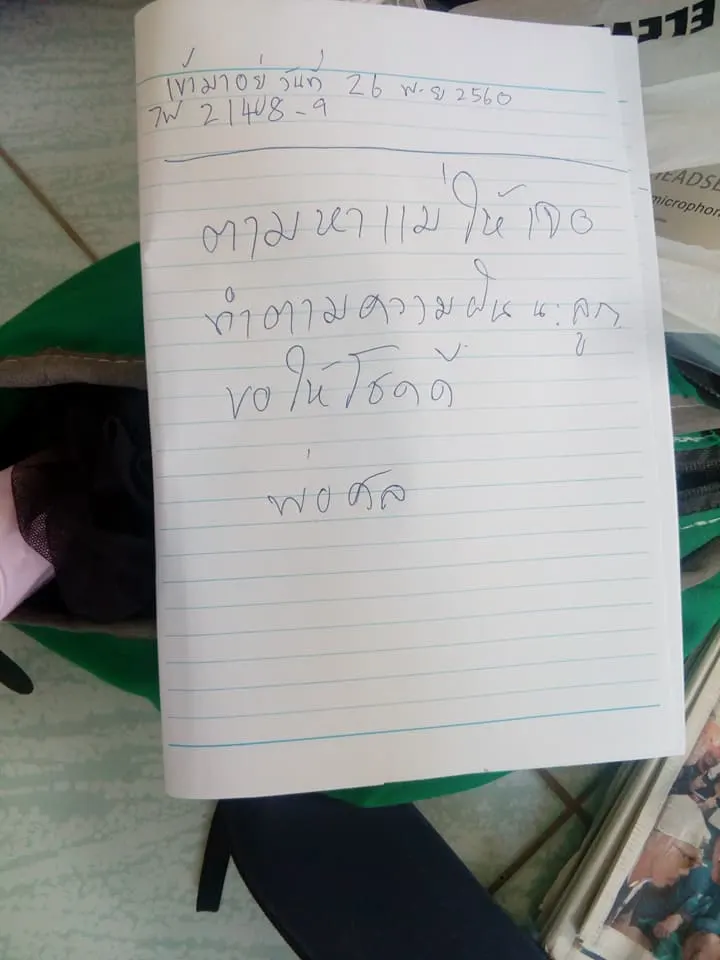 ELEVE
เข้ามาอยู่ วันที่ 26 พ.ย 2560
ไฟ 21408-9
HEADSE
microphon
ตามหาแม่ให้เจอ
ทำตามความฝัน นะลูก
ขอให้โชคดี
พ่อศล